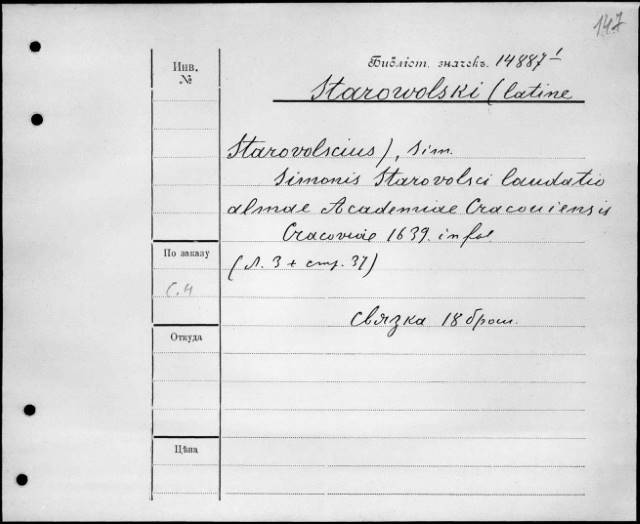 147
Инв.
№
Библіот. значекъ. 14887¹
Starowolski (latine
Starovolscius), Sim.
Simonis Starovolsci laudatio
almae Academiae Cracoviensis
Cracoviae 1639. in fol
По заказу
(Л. 3 + стр. 37)
С.4
связка 18 брош.
Откуда
Цѣна